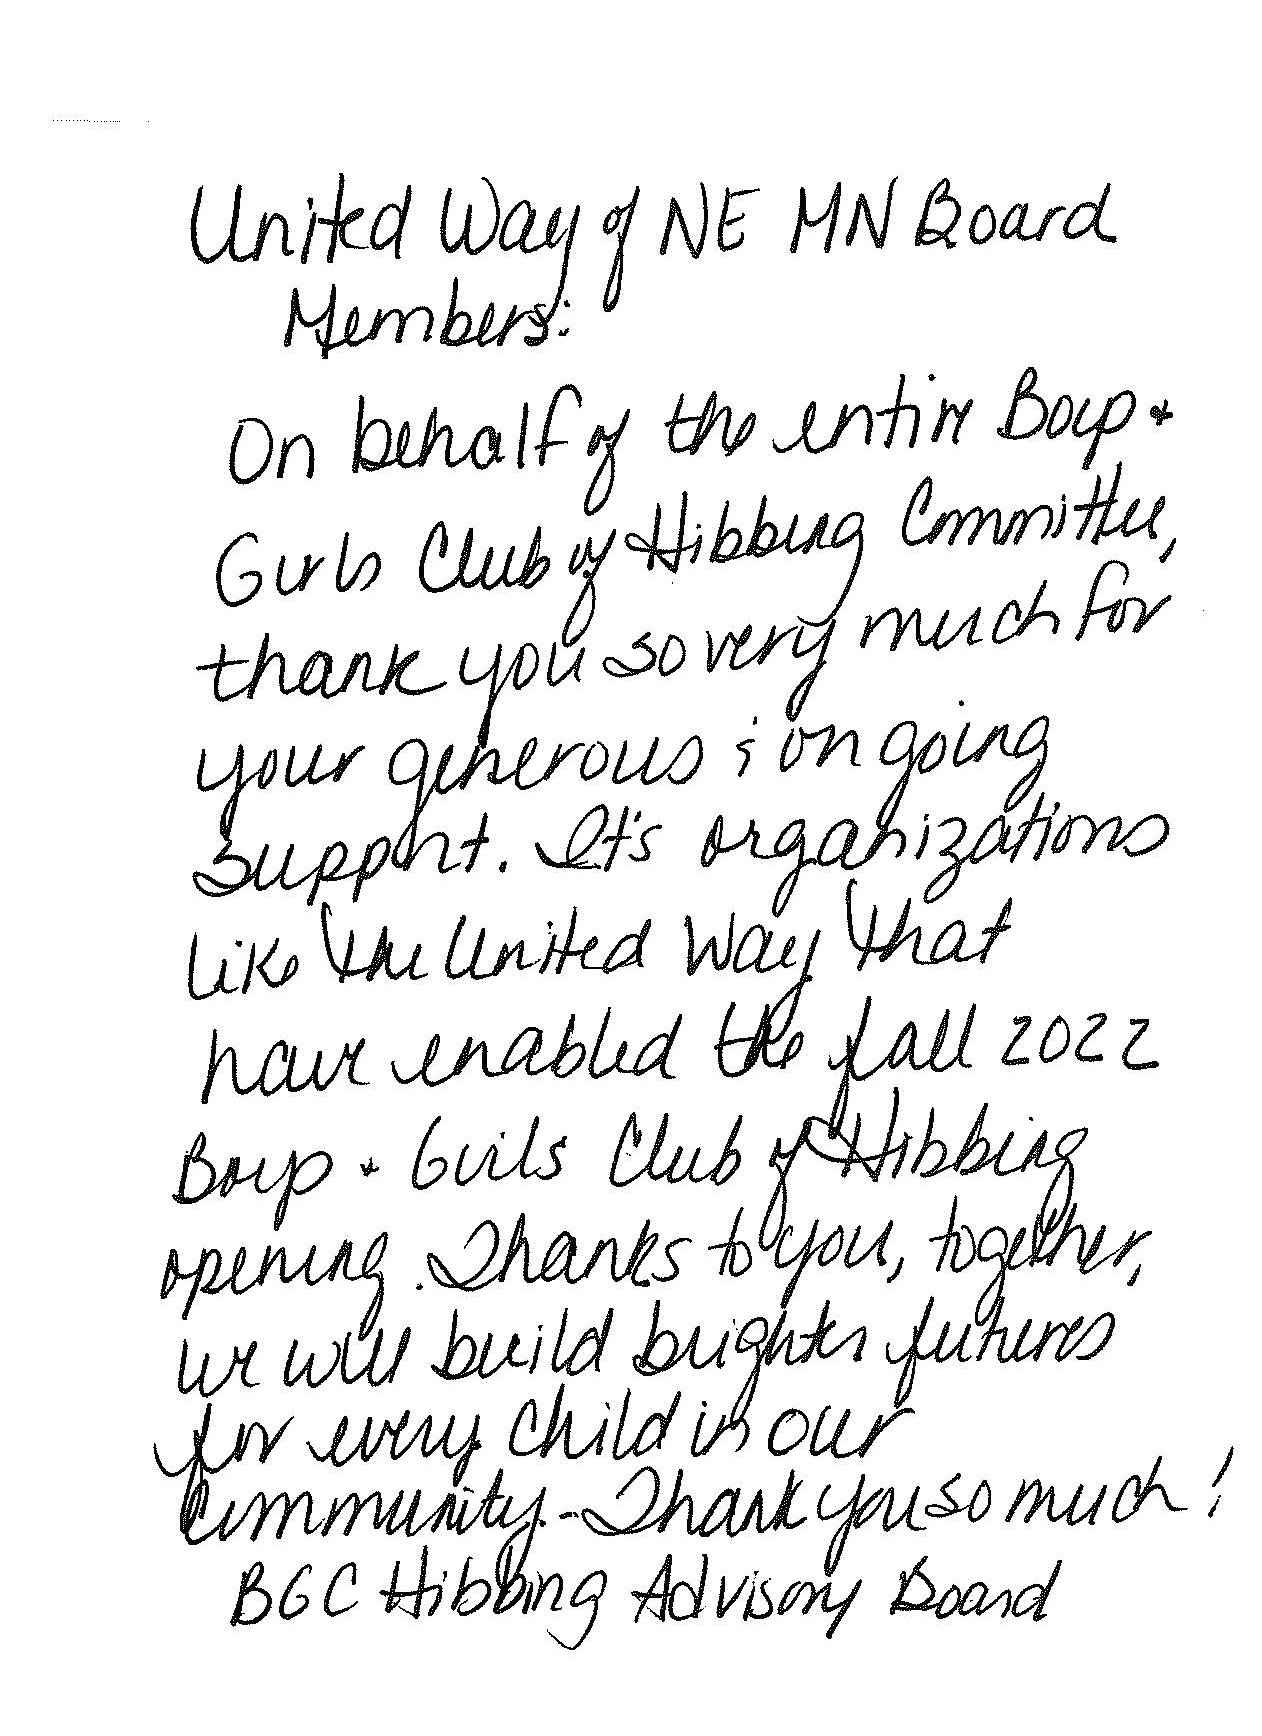 United Way of NE MN Board
Members:
On behalf of the entire Boys +
Girls Club of Hibbing Committee,
thank you so very much for
your generous & ongoing
support. It's organizations
like the United Way that
have enabled the fall 2022
Boys + Girls Club of Hibbing
opening. Thanks to you, together,
we will build brighter futures
for every child in our
community. - Thank you so much!
BGC Hibbing Advisory Board